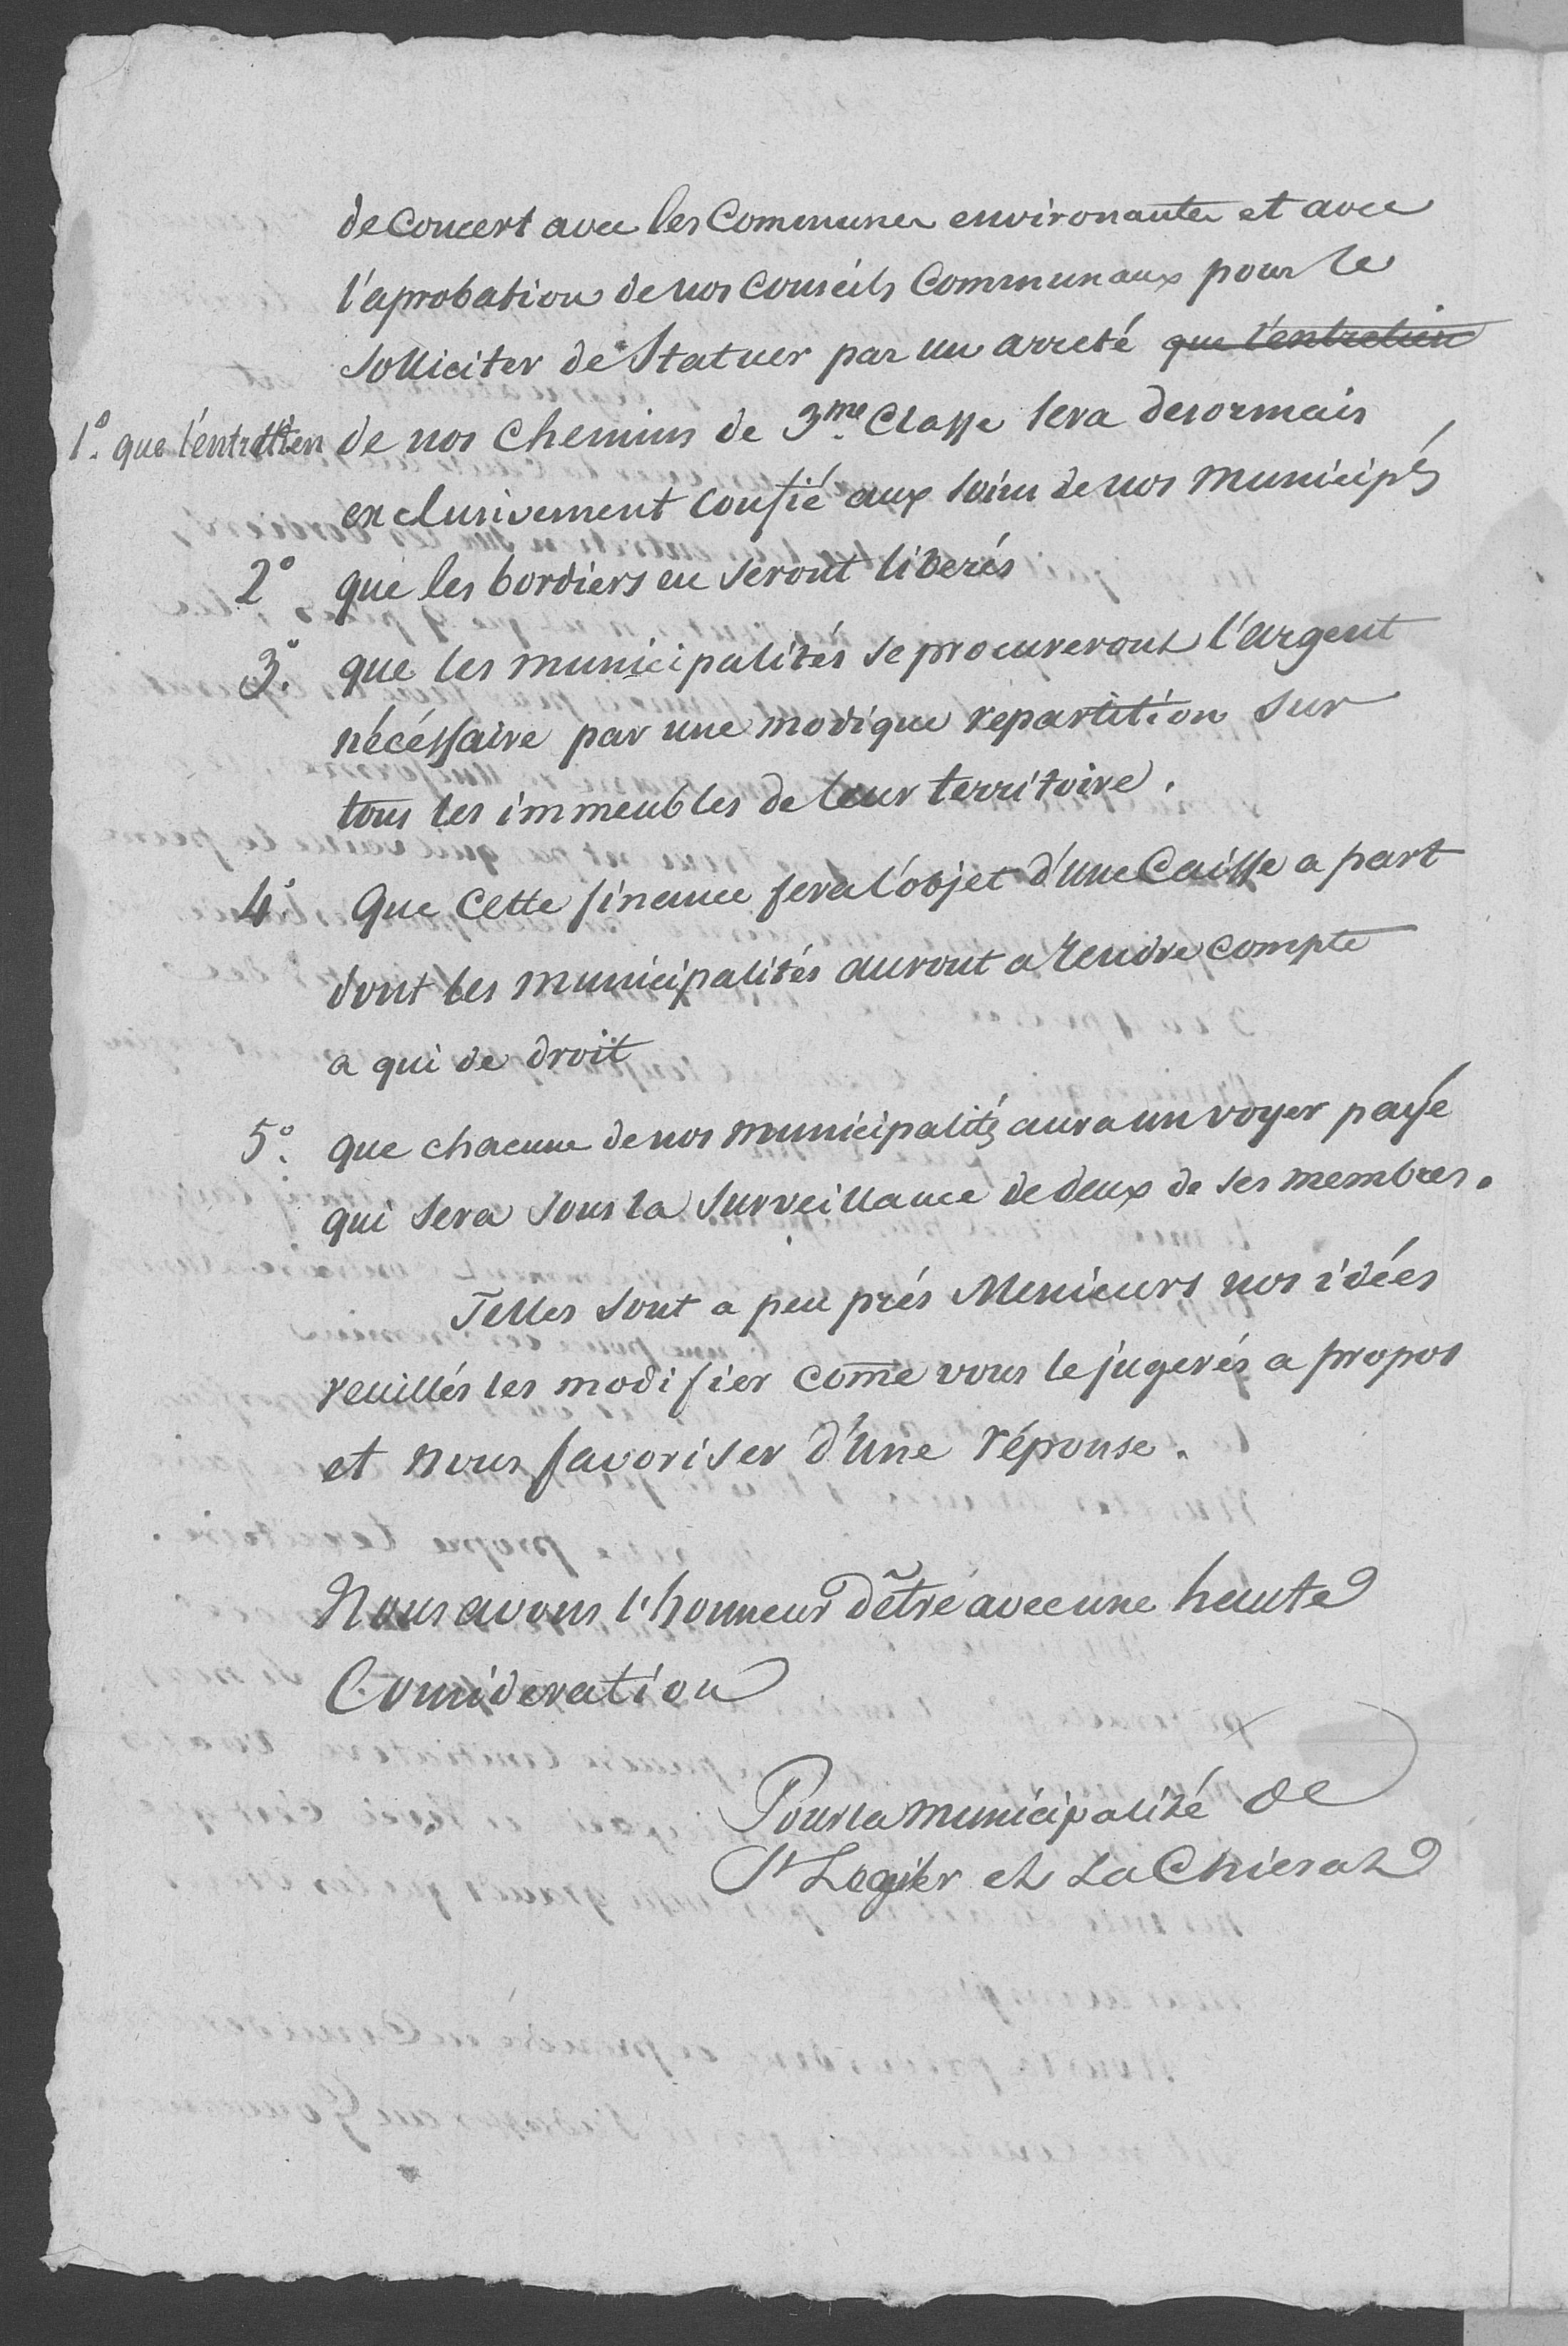 de Concert avec les Communes environantes et avec
l'aprobation de nos Conseils Communaux pour le
solliciter de Statuer par un arreté que l'entretien
1.° que l'entretien de nos chemins de 3.me Classe sera desormais
exclusivement confié aux soins de nos municip.és
2° que les bordiers en seront liberés
3.° que les municipalités se procureront l'argent
nécéssaire par une modique repartition sur
tous les immeubles de leur territoire.
4° Que cette finance sera l'objet d'une Caisse a part
dont les municipalités auront a rendre compte
a qui de droit
5.° que chacune de nos municipalités aura un voyer payé
qui sera sous la surveillance de deux de ses membres.
Telles sont a peu prés Messieurs nos idées
veuillés les modifier come vous le jugerés a propos
et nous favoriser d'une réponse.
Nous avons l'honneur d'être avec une haute
Consideration
Pour la municipalité de
St Legier et La Chiesaz